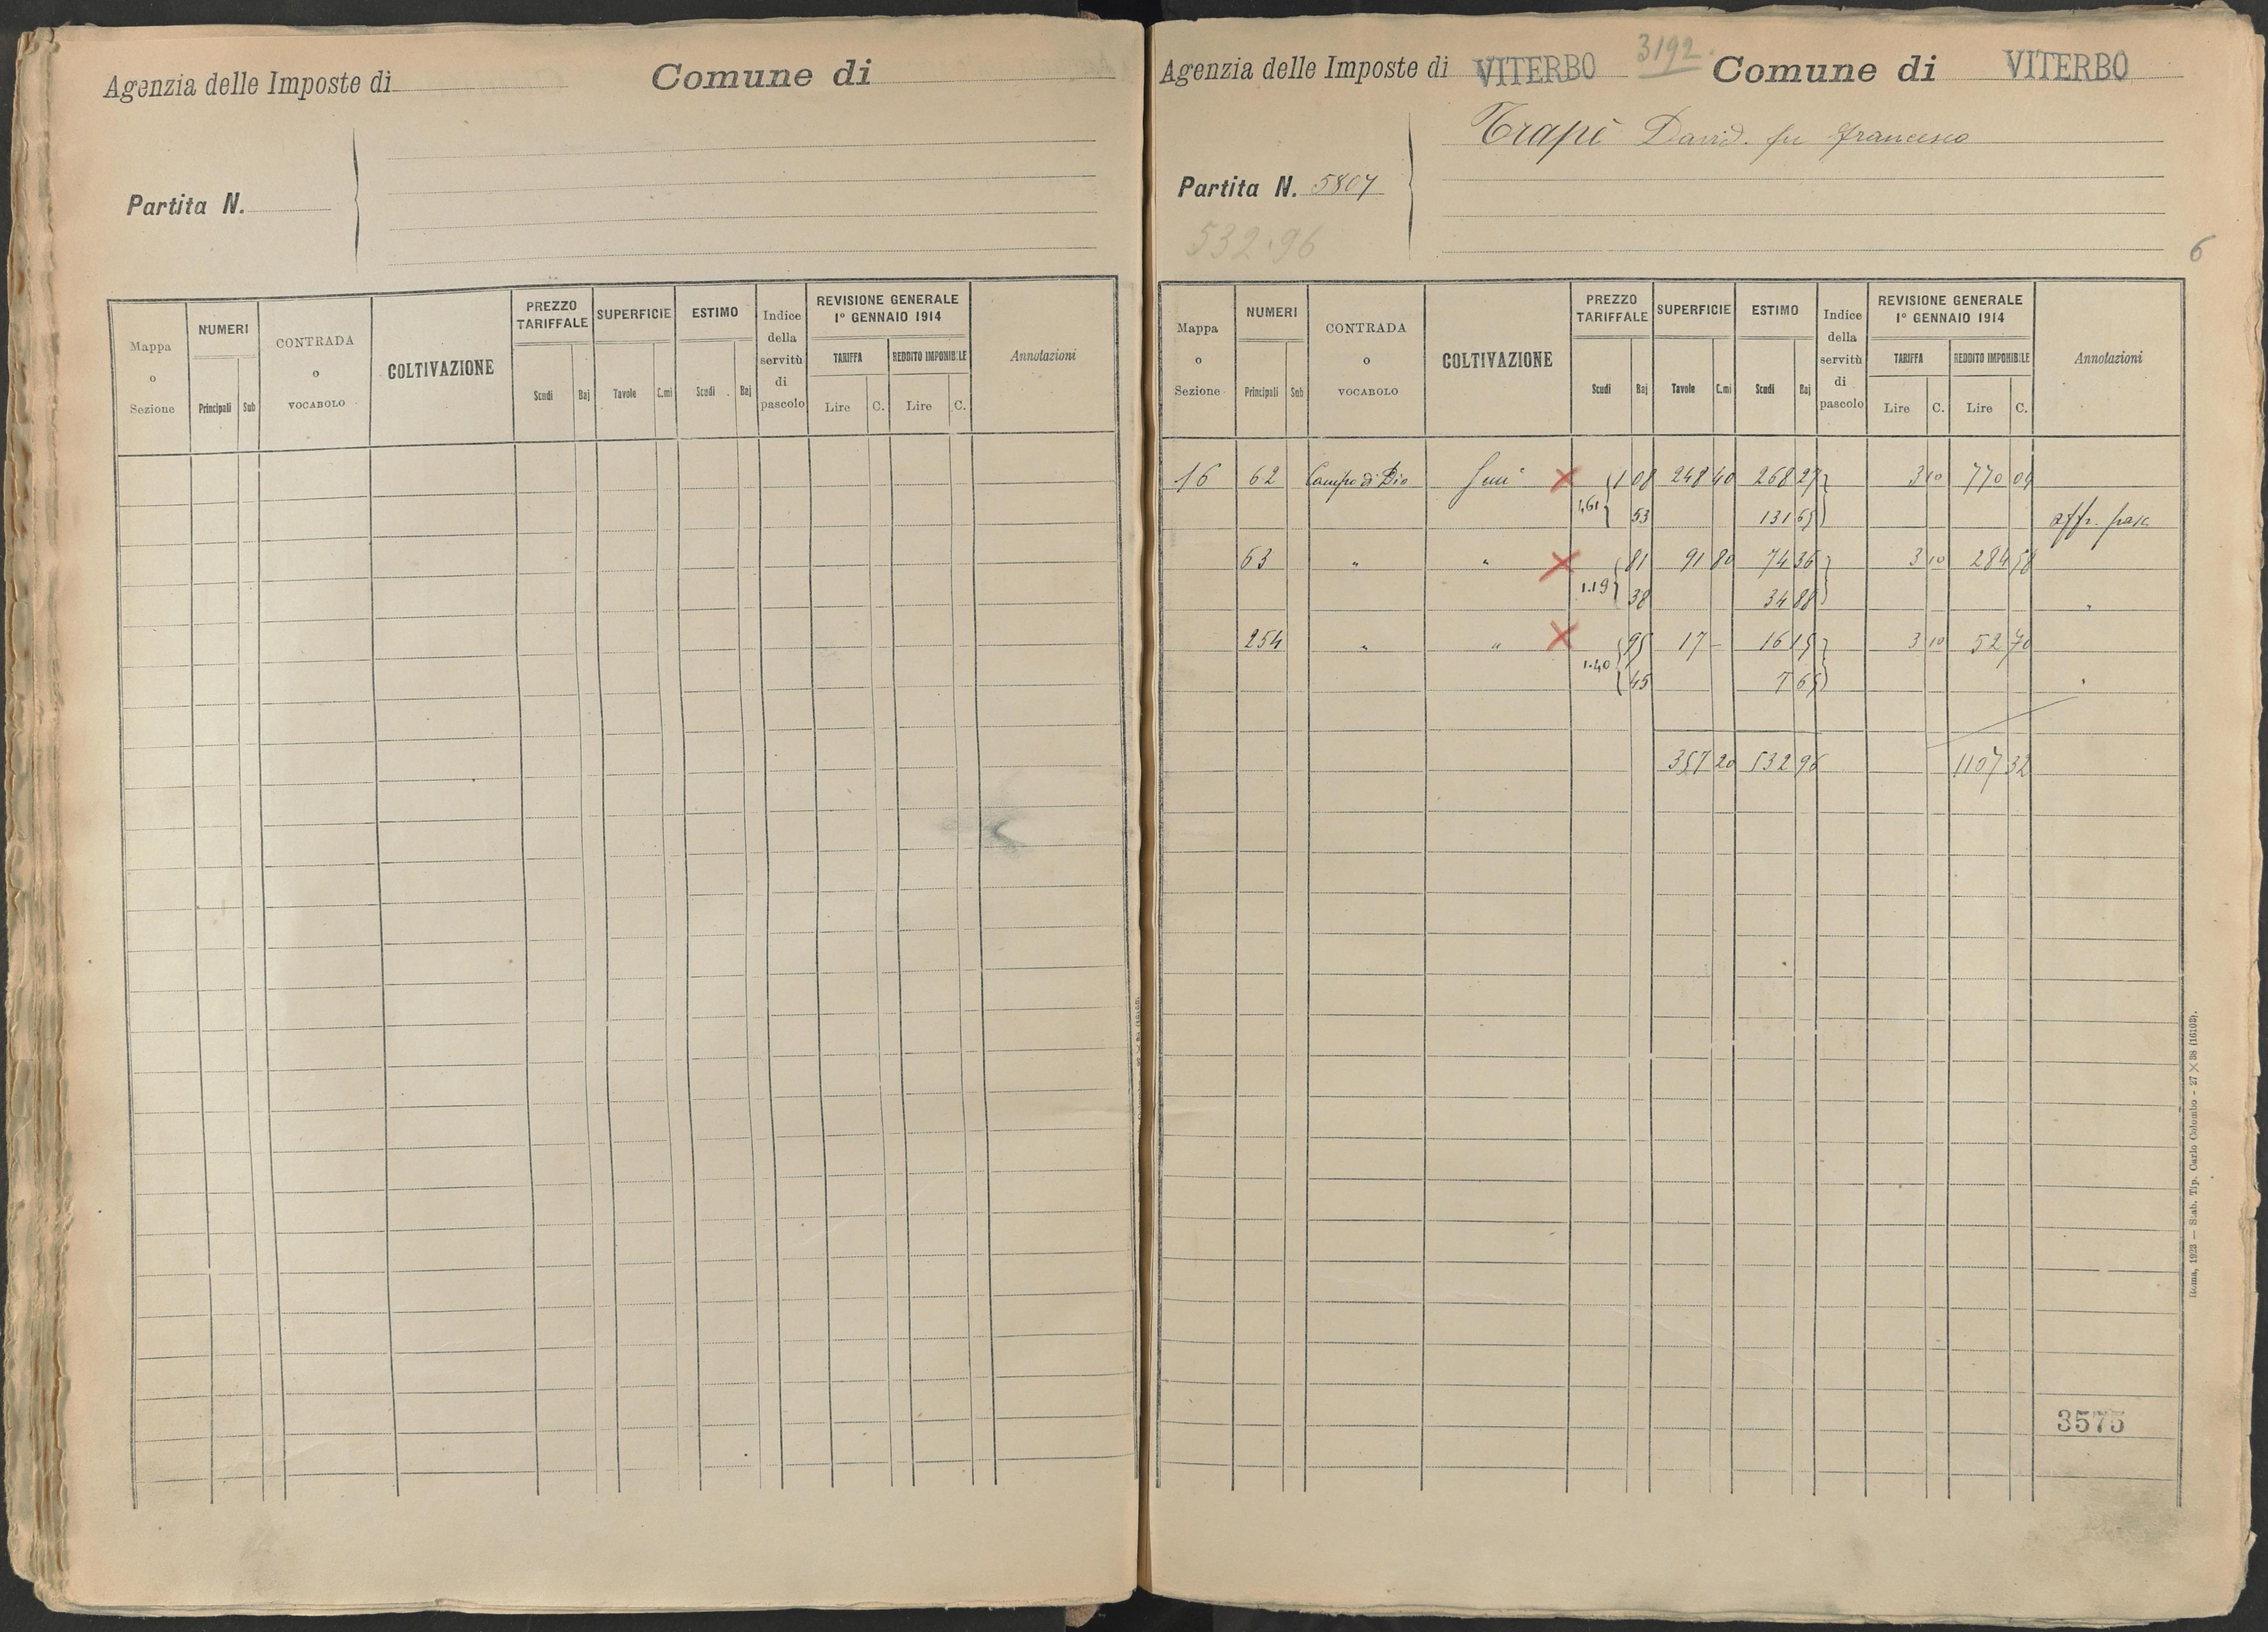 Agenzia delle Imposte di
Comune di
Partita N.
Mappa o Sezione
NUMERI
Principali
Sub
CONTRADA o VOCABOLO
COLTIVAZIONE
PREZZO TARIFFALE
Scudi
Baj
SUPERFICIE
Tavole
C.mi
ESTIMO
Scudi
Baj
Indice della servitù di pascolo
REVISIONE GENERALE
1° GENNAIO 1914
TARIFFA
REDDITO IMPONIBILE
Lire
C.
Lire
C.
Annotazioni
3192.
Agenzia delle Imposte di VITERBO Comune di VITERBO
Trapè David. fu Francesco
Partita N. 5807
532.96
6
Mappa o Sezione
NUMERI
Principali
Sub
CONTRADA o VOCABOLO
COLTIVAZIONE
PREZZO TARIFFALE
Scudi
Baj
SUPERFICIE
Tavole
C.mi
ESTIMO
Scudi
Baj
Indice della servitù di pascolo
REVISIONE GENERALE
1° GENNAIO 1914
TARIFFA
REDDITO IMPONIBILE
Lire
C.
Lire
C.
Annotazioni
16 62 Campo di Dio 1 08 248 40 268 27 3 10 770 04
1.61 53 131 65 affr. pasc
63 " " 81 91 80 74 36 3 10 284 58
1.19 38 34 88 "
254 " " 95 17 – 16 15 3 10 52 70
1.40 45 7 65 "
357 20 532 96 1107 32
3575
Roma, 1923 — Stab. Tip. Carlo Colombo - 27 × 38 (16103).